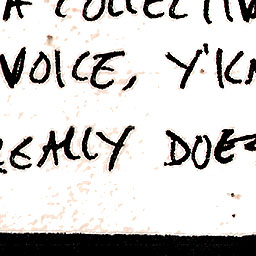 A COLLECTIV
VOICE, Y'KN
REALLY DOES